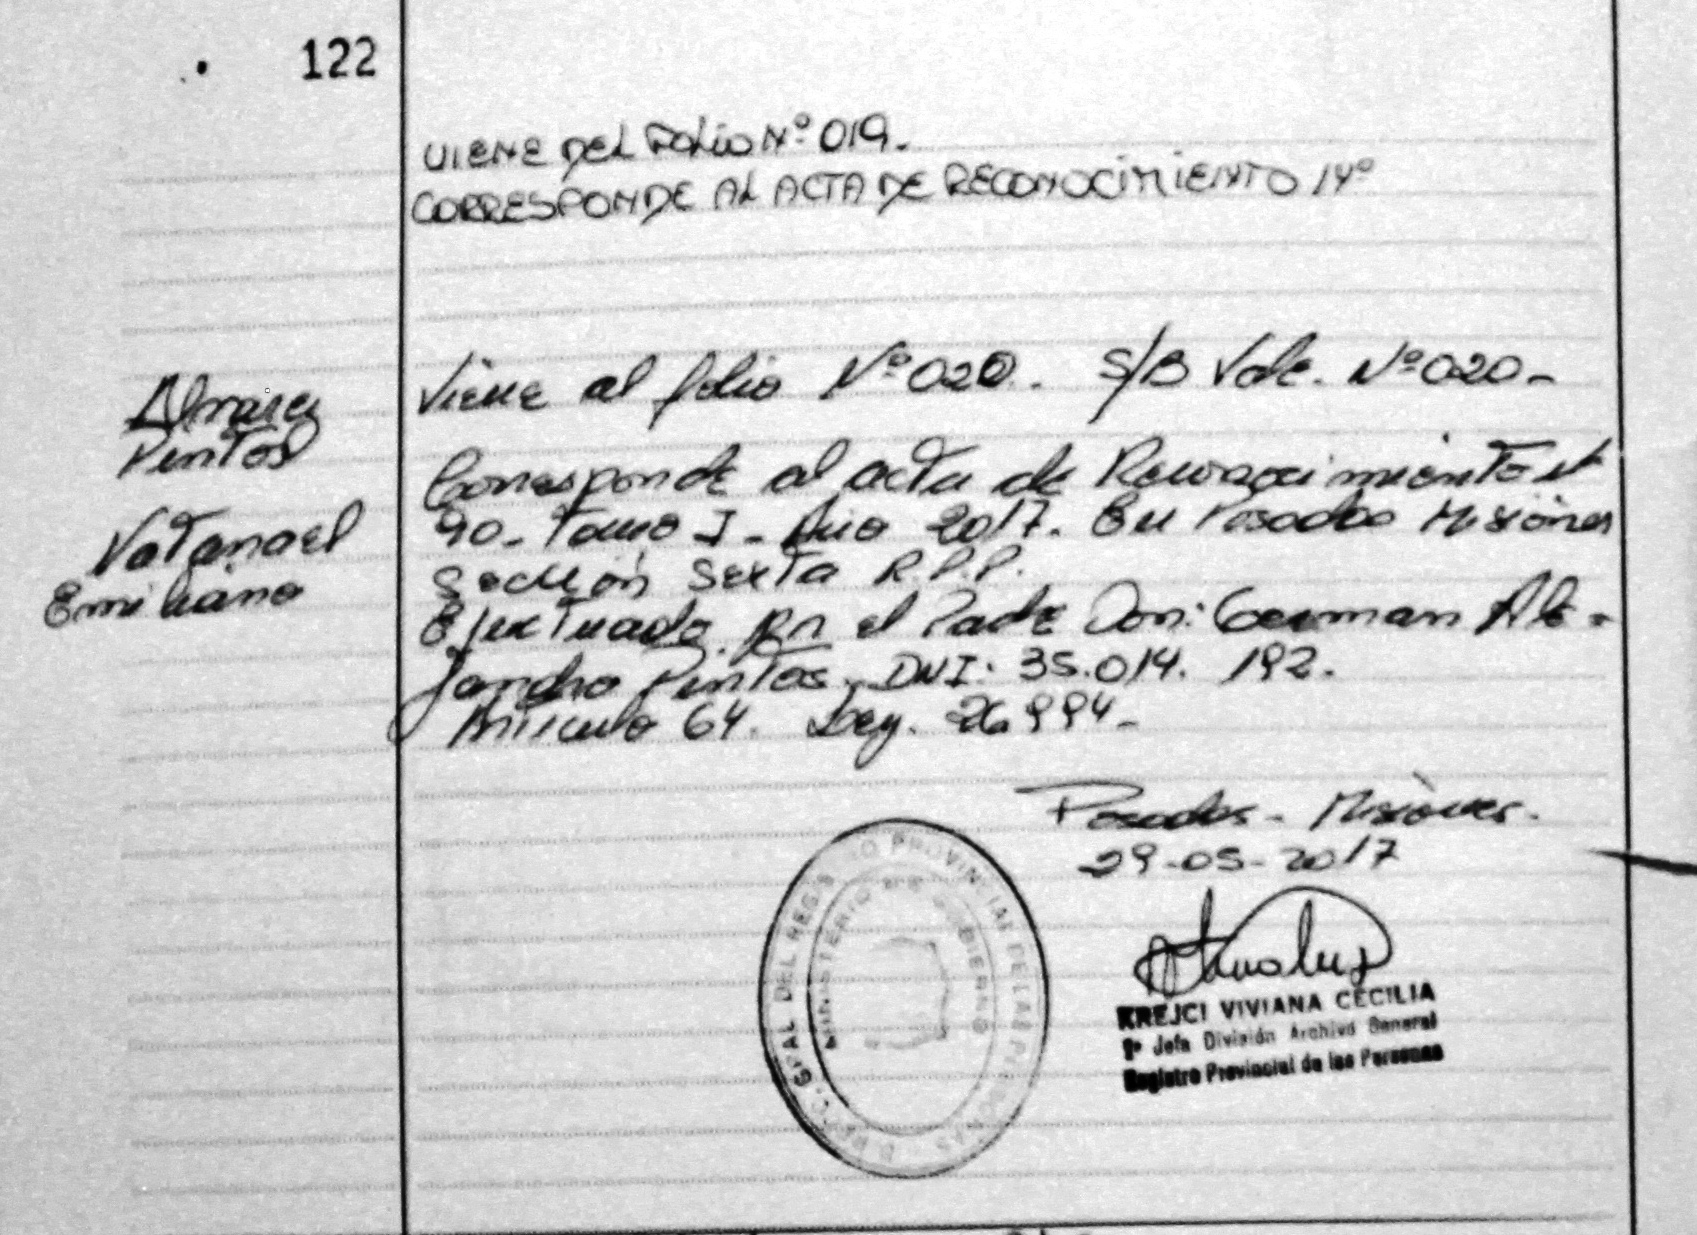 122
VIENE DEL FOLIO Nº 019.
CORRESPONDE AL ACTA DE RECONOCIMIENTO 14º
Viene al folio Nº 020. S/B Vale. Nº 020-
Alvarez
Pintos
Corresponde al acta de Reconocimiento Nº
Natanael
90- Tomo I- Año 2017. En Posadas Misiones
Emiliano
Sección Sexta R.P.P.
Efectuado por el Padre Don: German Ale-
jandro Pintos. DNI: 35.014.192.
Artículo 64. Ley. 26994-
Posadas- Misiones.
29-05-2017
KREJCI VIVIANA CECILIA
Jefa División Archivo General
Registro Provincial de las Personas
GRAL DEL REGISTRO PROVINCIAL DE LAS PERSONAS
MINISTERIO DE GOBIERNO